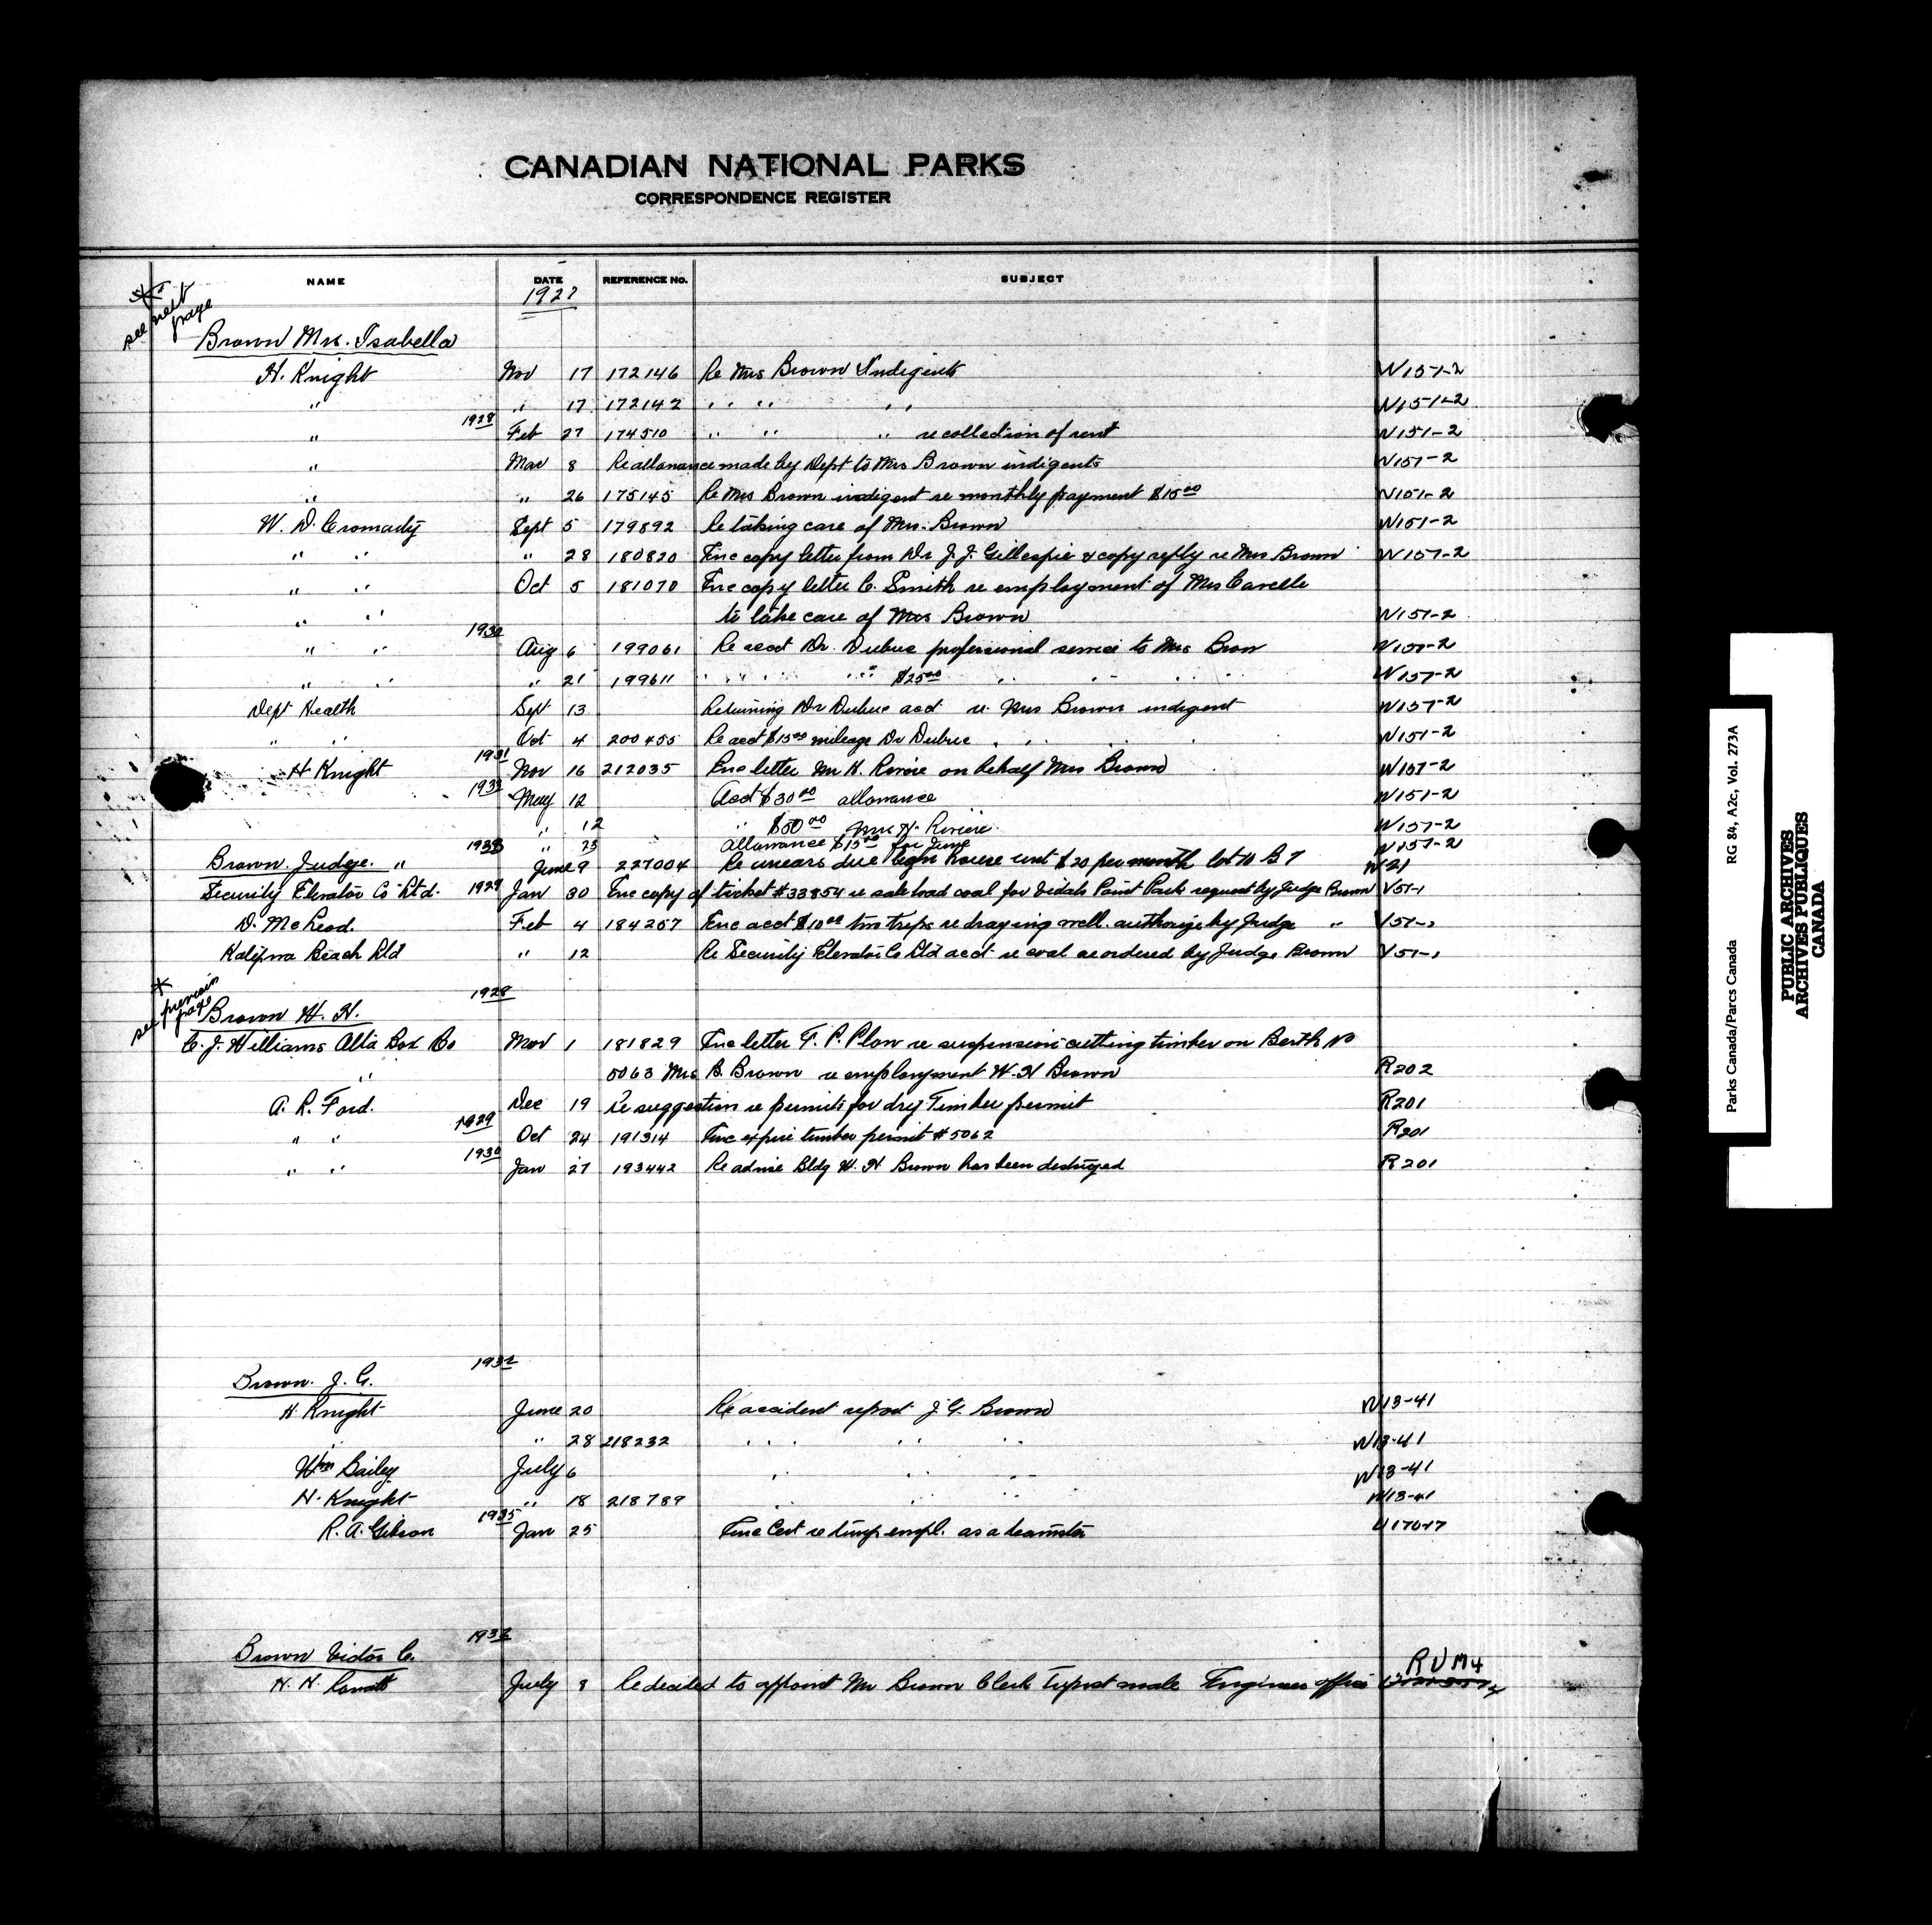 CANADIAN NATIONAL PARKS
CORRESPONDENCE REGISTER
NAME DATE REFERENCE No. SUBJECT
1927
* see next page
Brown Mrs. Isabella
H. Knight Nov 17 172146 Re Mrs Brown Indigents W157-2
" " 17 172142 " " " " W157-2
" 1928 Feb 27 174510 " " " re collection of rent W157-2
" Mar 8 Re allowance made by Dept to Mrs Brown indigents W157-2
" " 26 175145 Re Mrs Brown indigent re monthly payment $15.00 W157-2
W. D. Cromarty Sept 5 179892 Re taking care of Mrs. Brown W157-2
" " " 28 180820 Enc copy letter from Dr J. J. Gillespie & copy reply re Mrs Brown W157-2
" " Oct 5 181070 Enc copy letter C. Smith re employment of Mrs Carelle
" " to take care of Mrs Brown W157-2
" " 1930 Aug 6 199061 Re acct Dr. Dubuc professional service to Mrs Brow W157-2
" " " 21 199611 " " " " " $25.00 " " " " W157-2
Dept Health Sept 13 Returning Dr Dubuc acct re Mrs Brown indigent W157-2
" " Oct 4 200455 Re acct $15.00 mileage Dr Dubuc " " " " W157-2
H Knight 1931 Nov 16 212035 Enc letter Mr H. Riviere on behalf Mrs Brown W157-2
1932 May 12 Acct $30.00 allowance W157-2
" 12 " $50.00 Mrs H. Riviere W157-2
" 23 allowance $15.00 for June W157-2
Brown. Judge. " 1933 June 9 227004 Re arrears due house rent $20 per month lot 10 B 7 W21
Security Elevator Co Ltd. 1929 Jan 30 Enc copy of ticket #33854 re sale load coal for Vidals Point Park request by Judge Brown V57-1
D. McLeod. Feb 4 184257 Enc acct $10.00 two trips re draying well. authorize by Judge " V57-1
Katepwa Beach Ltd " 12 Re Security Elevator Co Ltd acct re coal as ordered by Judge Brown V57-1
* see previous page
1928
Brown W. H.
C. J. Williams Alta Box Co Nov 1 181829 Enc letter T. P. Plow re suspension cutting timber on Berth No
" 5063 Mrs B. Brown re employment W. H Brown R202
A. R. Ford. Dec 19 Re suggestion re permits for dry Timber permit R201
" " 1929 Oct 24 191314 Enc expire timber permit #5062 R201
" " 1930 Jan 27 193442 Re advise Bldg W. H Brown has been destroyed R201
1932
Brown. J. G.
H. Knight June 20 Re accident report J. G. Brown W13-41
" 28 218232 " " " " " W13-41
Wm Bailey July 6 " " " W13-41
H. Knight " 18 218789 " " " W13-41
R. A. Gibson 1935 Jan 25 Enc Cert re temp empl. as a teamster U170-17
1936
Brown Victor C.
July 8 Re decided to appoint Mr Brown Clerk Typist male Engineers office RUM4
Parks Canada/Parcs Canada RG 84, A2c, Vol. 273A
PUBLIC ARCHIVES
ARCHIVES PUBLIQUES
CANADA